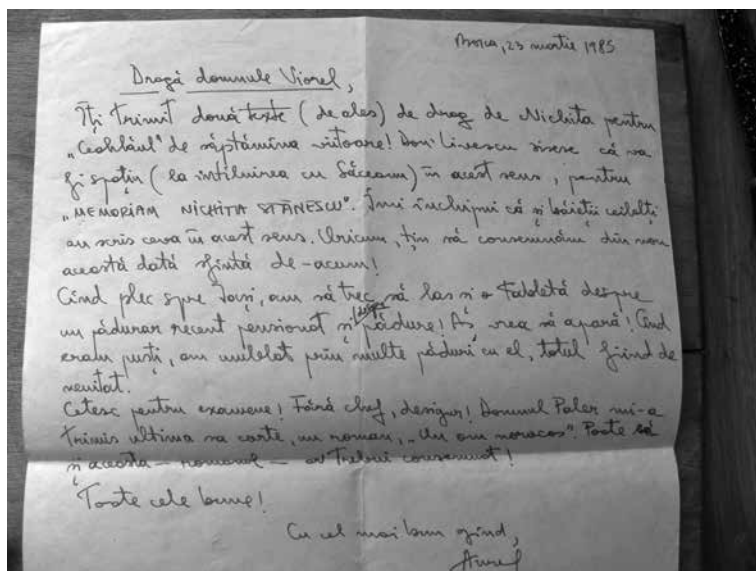 Broca, 23 martie 1985
Dragă domnule Viorel,
Îți trimit două texte (de ales) de drag de Nichita pentru
„Ceahlăul" de săptămîna viitoare! Don' Livescu zisese că va
fi spațiu (la întîlnirea cu Săceanu) în acest sens, pentru
„MEMORIAM NICHITA STĂNESCU". Îmi închipui că și băieții ceilalți
au scris ceva în acest sens. Oricum, țin să consemnăm din nou
această dată sfîntă de-acum!
Cînd plec spre Iași, am să trec să las și o tabletă despre
un pădurar recent pensionat și despre pădure! Aș vrea să apară! Cînd
eram puști, am umblat prin multe păduri cu el, totul fiind de
neuitat.
Citesc pentru examene! Fără chef, desigur! Domnul Paler mi-a
trimis ultima sa carte, un roman, „Un om norocos". Poate
și aceasta – romanul – ar trebui consemnat!
Toate cele bune!
Cu cel mai bun gînd,
Aurel